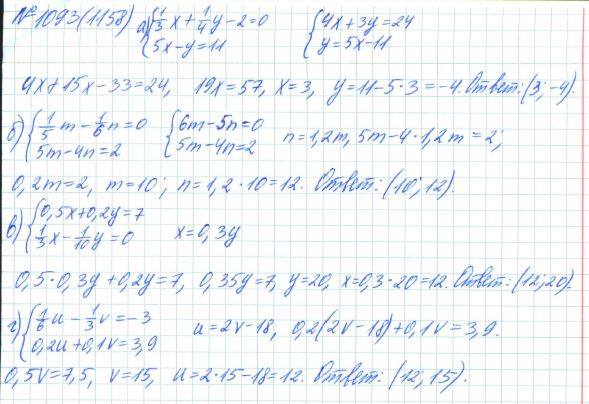 №1093(1158) а) {1/3 x + 1/4 y - 2 = 0 {4x + 3y = 24
{5x - y = 11 {y = 5x - 11
4x + 15x - 33 = 24, 19x = 57, x = 3, y = 11 - 5·3 = -4. Ответ: (3; -4).
б) {1/5 m - 1/6 n = 0 {6m - 5n = 0 n = 1,2m, 5m - 4·1,2m = 2;
{5m - 4n = 2 {5m - 4n = 2
0,2m = 2, m = 10; n = 1,2·10 = 12. Ответ: (10; 12).
в) {0,5x + 0,2y = 7
{1/3 x - 1/10 y = 0 x = 0,3y
0,5·0,3y + 0,2y = 7, 0,35y = 7, y = 20, x = 0,3·20 = 12. Ответ: (12; 20).
г) {1/6 u - 1/3 v = -3 u = 2v - 18, 0,2(2v - 18) + 0,1v = 3,9.
{0,2u + 0,1v = 3,9
0,5v = 7,5, v = 15, u = 2·15 - 18 = 12. Ответ: (12; 15).